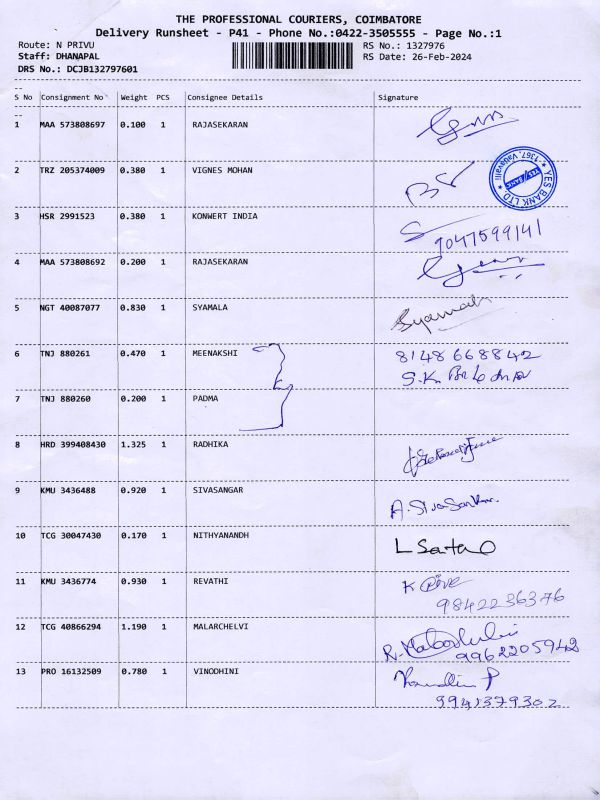 THE PROFESSIONAL COURIERS, COIMBATORE
Delivery Runsheet - P41 - Phone No.:0422-3505555 - Page No.:1
Route: N PRIVU RS No.: 1327976
Staff: DHANAPAL RS Date: 26-Feb-2024
DRS No.: DCJB132797601
--
S No Consignment No Weight PCS Consignee Details Signature
--
1 MAA 573808697 0.100 1 RAJASEKARAN
2 TRZ 205374009 0.380 1 VIGNES MOHAN
YES BANK LTD
YES BANK
1367, Vadavalli
3 HSR 2991523 0.380 1 KONWERT INDIA
9047599141
4 MAA 573808692 0.200 1 RAJASEKARAN
5 NGT 40087077 0.830 1 SYAMALA Syamala
6 TNJ 880261 0.470 1 MEENAKSHI 8148668842
S.K.
7 TNJ 880260 0.200 1 PADMA
8 HRD 399408430 1.325 1 RADHIKA
9 KMU 3436488 0.920 1 SIVASANGAR A. Sivasankar
10 TCG 30047430 0.170 1 NITHYANANDH L
11 KMU 3436774 0.930 1 REVATHI K
9842236376
12 TCG 40866294 1.190 1 MALARCHELVI R.
9962205942
13 PRO 16132509 0.780 1 VINODHINI
9941379302